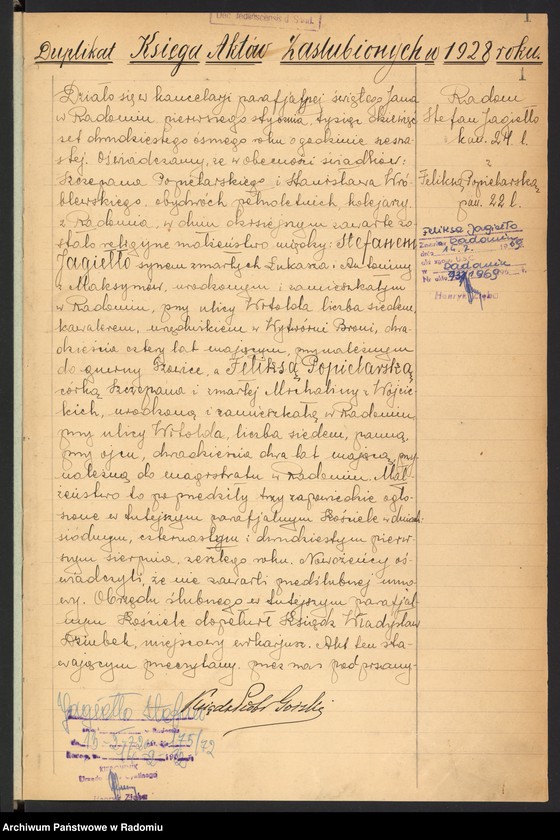 1
Duplikat Księga Aktów Zaślubionych w 1928 roku.
1
Radom
Stefan Jagiełło
kaw. 24 l.
z
Feliksą Popielarską
pan. 22 l.
Działo się w kancelarji parafjalnej świętego Jana
w Radomiu pierwszego stycznia, tysiąc dziewięć
set dwudziestego ósmego roku o godzinie szesna-
stej. Oświadczamy, że w obecności świadków:
Szczepana Popielarskiego i Stanisława Wró-
blewskiego, obydwóch pełnoletnich kolejarzy
z Radomia, w dniu dzisiejszym zawarte zo-
stało religijne małżeństwo między: Stefanem
Jagiełło synem zmarłych Łukasza i Antoniny
z Maksymów, urodzonym i zamieszkałym
w Radomiu, przy ulicy Witolda liczba siedem,
kawalerem, urzędnikiem w Wytwórni Broni, dwa-
dzieścia cztery lat mającym, przynależnym
do gminy, a Feliksą Popielarską
córką Szczepana i zmarłej Michaliny z Wójcic-
kich, urodzoną i zamieszkałą w Radomiu,
przy ulicy Witolda, liczba siedem, panną,
przy ojcu, dwadzieścia dwa lat mającą, przy
należną do magistratu w Radomiu. Mał-
żeństwo to poprzedziły trzy zapowiedzie ogło-
szone w tutejszym parafjalnym Kościele w dniach:
siódmym, czternastym i dwudziestym pierw-
szym sierpnia, zeszłego roku. Nowożeńcy oś-
wiadczyli, że nie zawarli przedślubnej umo-
wy. Obrzędu ślubnego w tutejszym parafjal-
nym Kościele dopełnił Ksiądz Władysław
Dziubek, miejscowy wikarjusz. Akt ten sta-
wającym przeczytany, przez nas podpisany
Ksiądz Piotr Górski
Feliksa Jagiełło
Radomiu
14. 7. 1969
Radomiu
1969
Henryk
Jagiełło Stefan
175/72
Henryk
Archiwum Państwowe w Radomiu